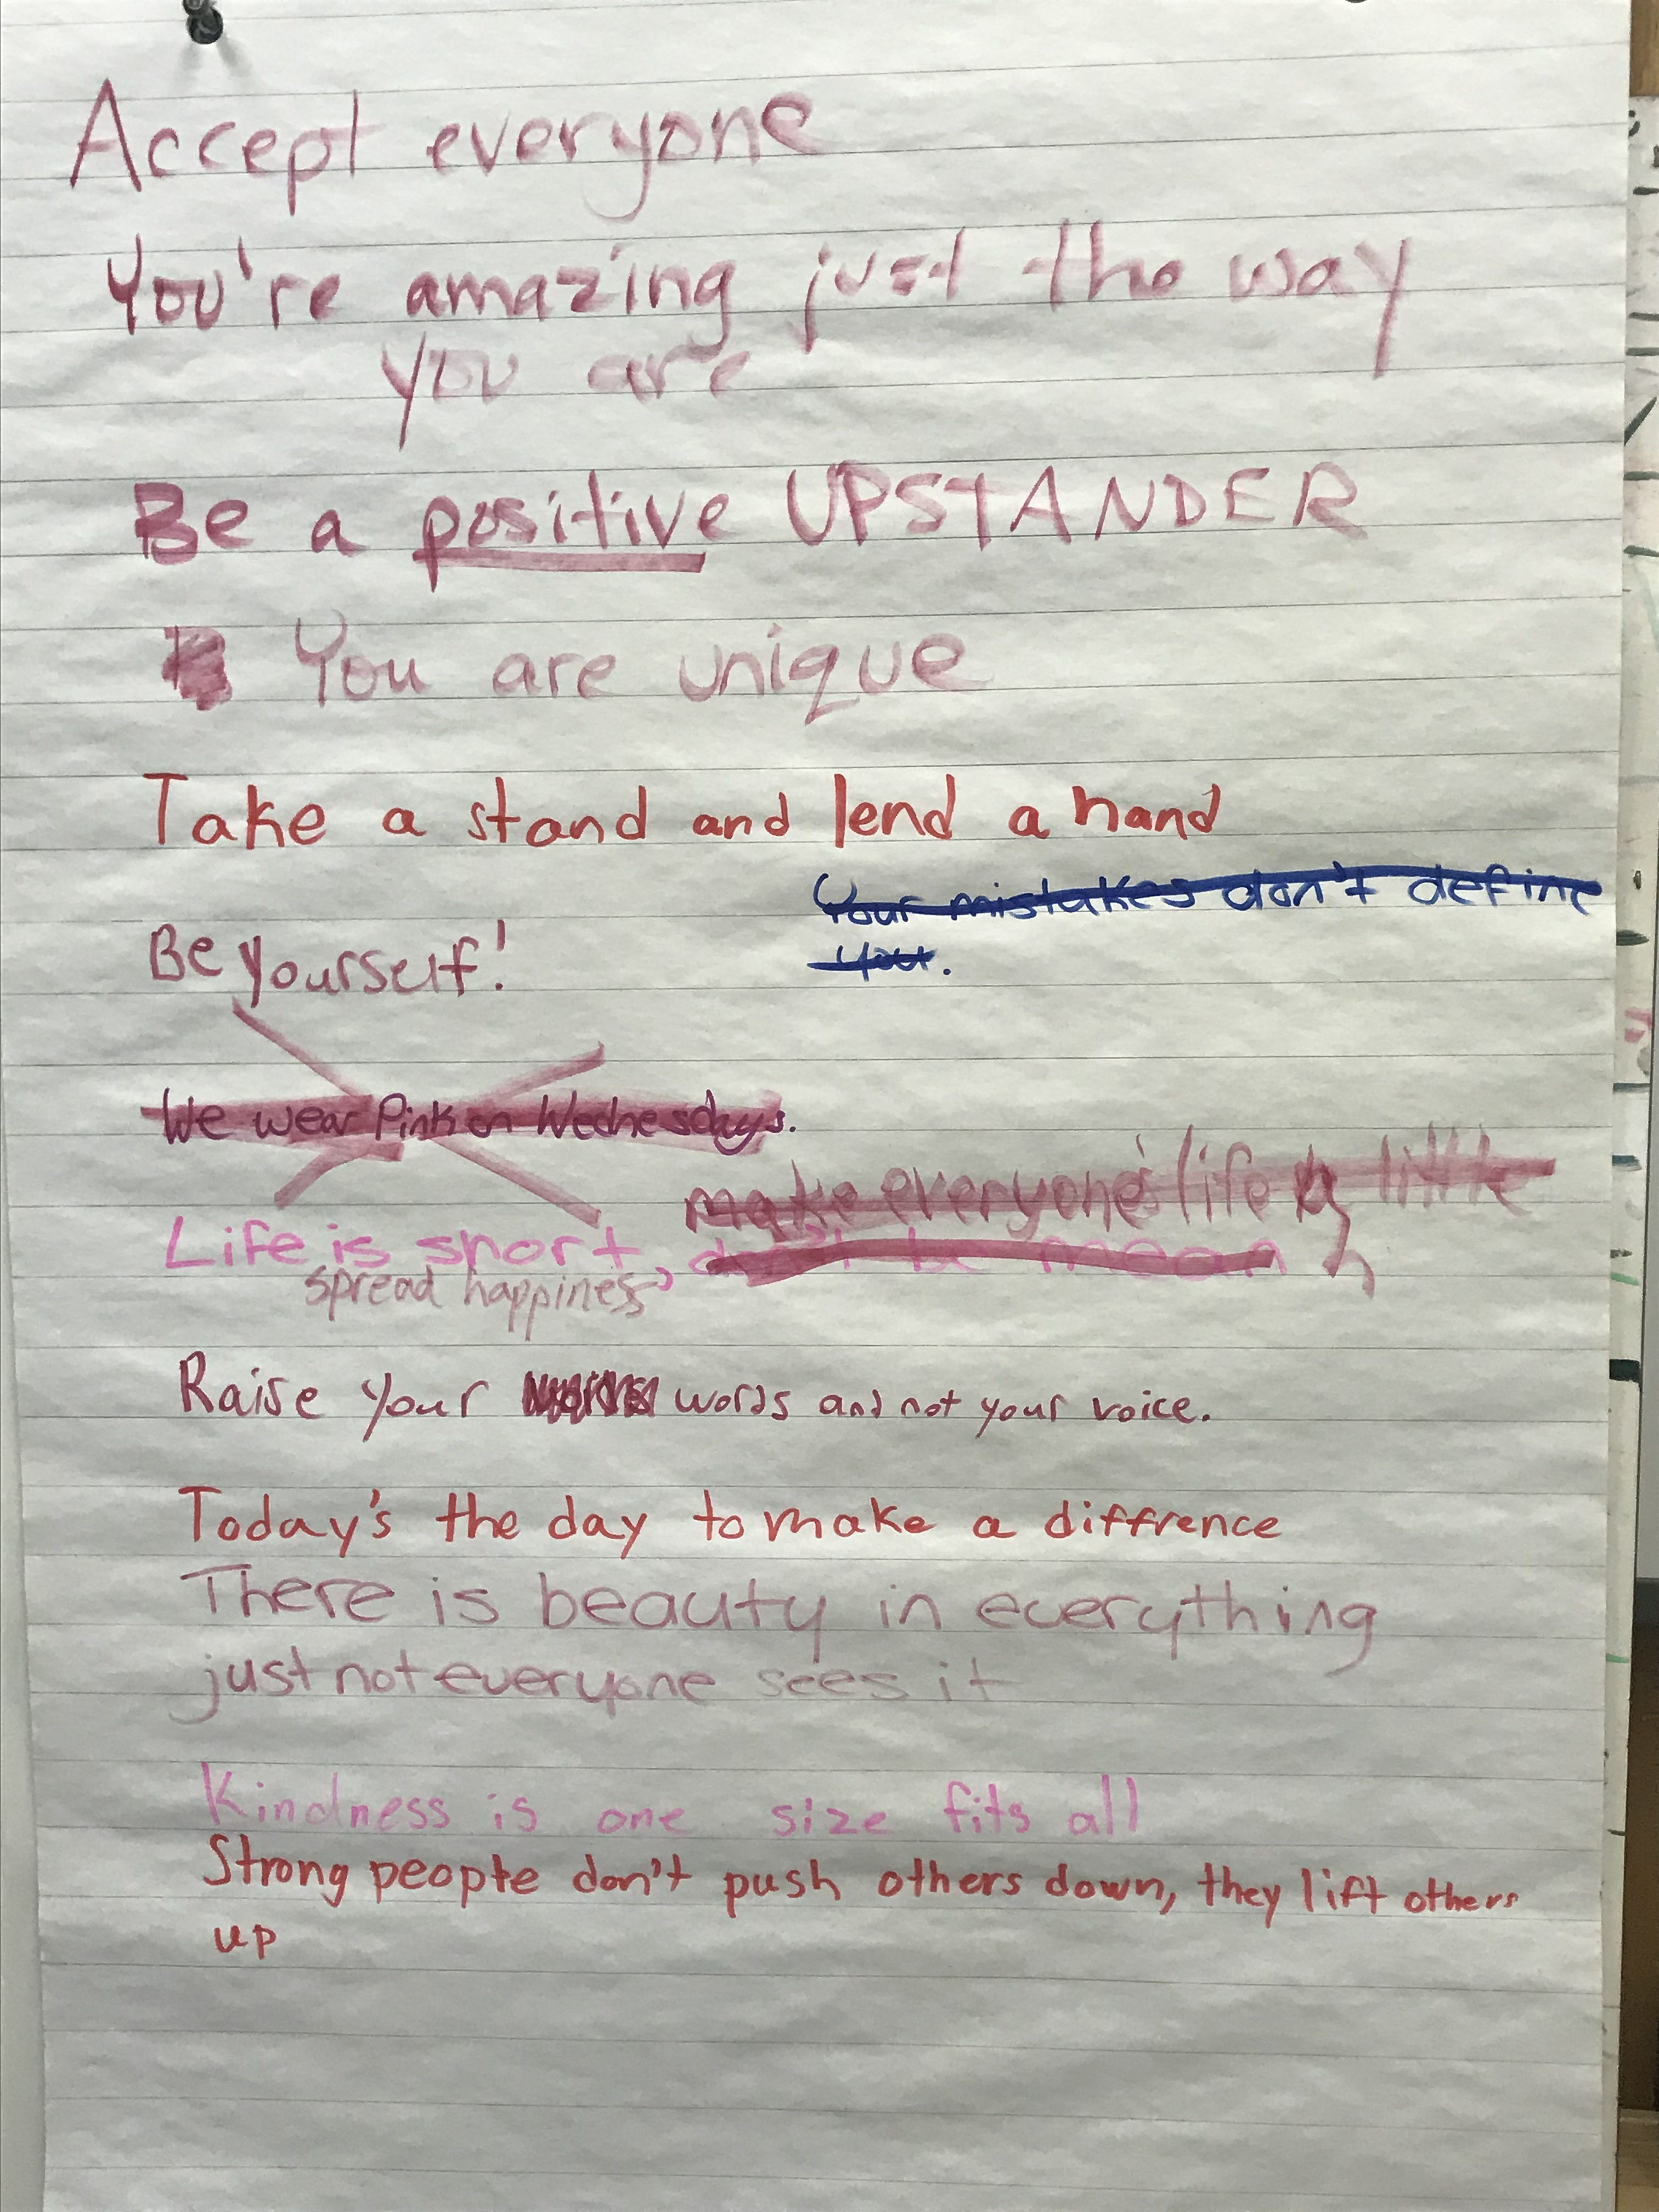 Accept everyone
You're amazing just the way
you are
Be a positive UPSTANDER
You are unique
Take a stand and lend a hand
Your mistakes don't define
you.
Be yourself!
We wear Pink on Wednesdays.
make everyone's life a little
Life is short, don't be mean
spread happiness
Raise your words and not your voice.
Today's the day to make a diffrence
There is beauty in everything
just not everyone sees it
Kindness is one size fits all
Strong people don't push others down, they lift others
up